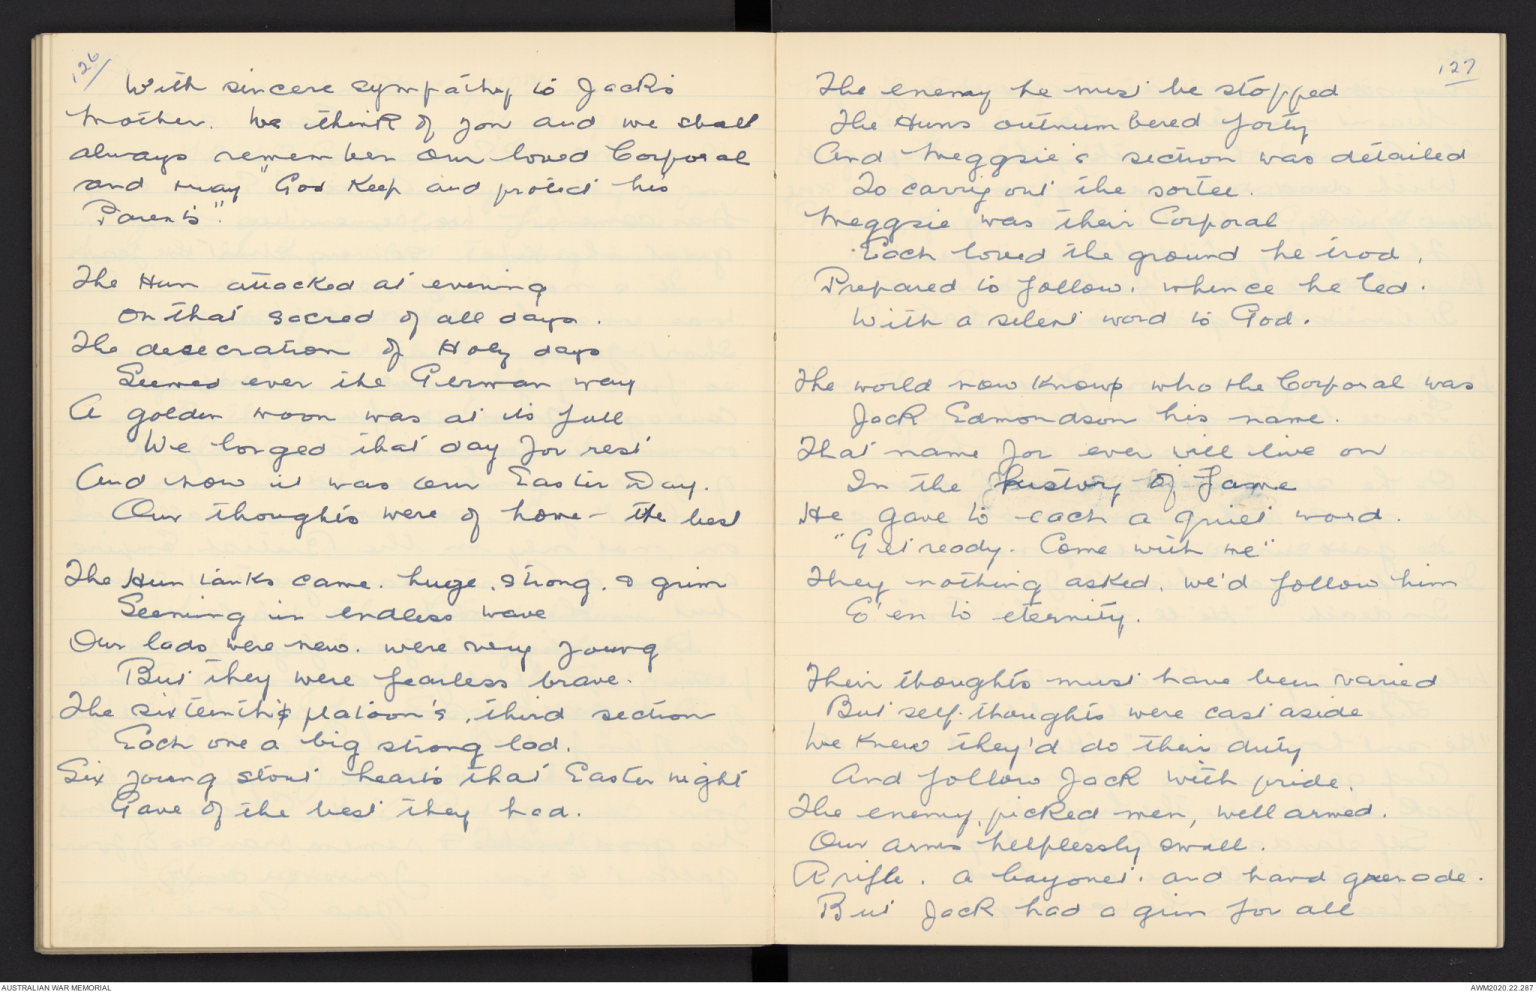 126/
With sincere sympathy to Jack's
Mother. We think of you and we shall
always remember our loved Corporal
and may "God Keep and protect his
Parents".
The Hun attacked at evening
On that sacred of all days.
The desecration of Holy days
Seemed ever the German way
A golden moon was at its full
We longed that day for rest
And now it was our Easter Day.
Our thoughts were of home - the best
The Hun tanks came. huge. strong. & grim
Seeming in endless wave
Our lads were new. were very young
But they were fearless brave.
The sixteenth's platoon's. third section
Each one a big strong lad.
Six young stout hearts that Easter night
Gave of the best they had.
127
The enemy he must be stopped
The Huns outnumbered forty
And Meggsie's section was detailed
To carry out the sortee.
Meggsie was their Corporal
Each loved the ground he trod.
Prepared to follow. whence he led.
With a silent word to God.
The world now knows who the Corporal was
Jack Edmondson his name.
That name for ever will live on
In the history of fame
He gave to each a quiet word.
"Get ready. Come with me"
They nothing asked. we'd follow him
E'en to eternity.
Their thoughts must have been varied
But self-thoughts were cast aside
We knew they'd do their duty
And follow Jack with pride.
The enemy, picked men, well armed.
Our arms helplessly small.
A rifle. a bayonet. and hand grenade.
But Jack had a grin for all
AUSTRALIAN WAR MEMORIAL
AWM2020.22.287